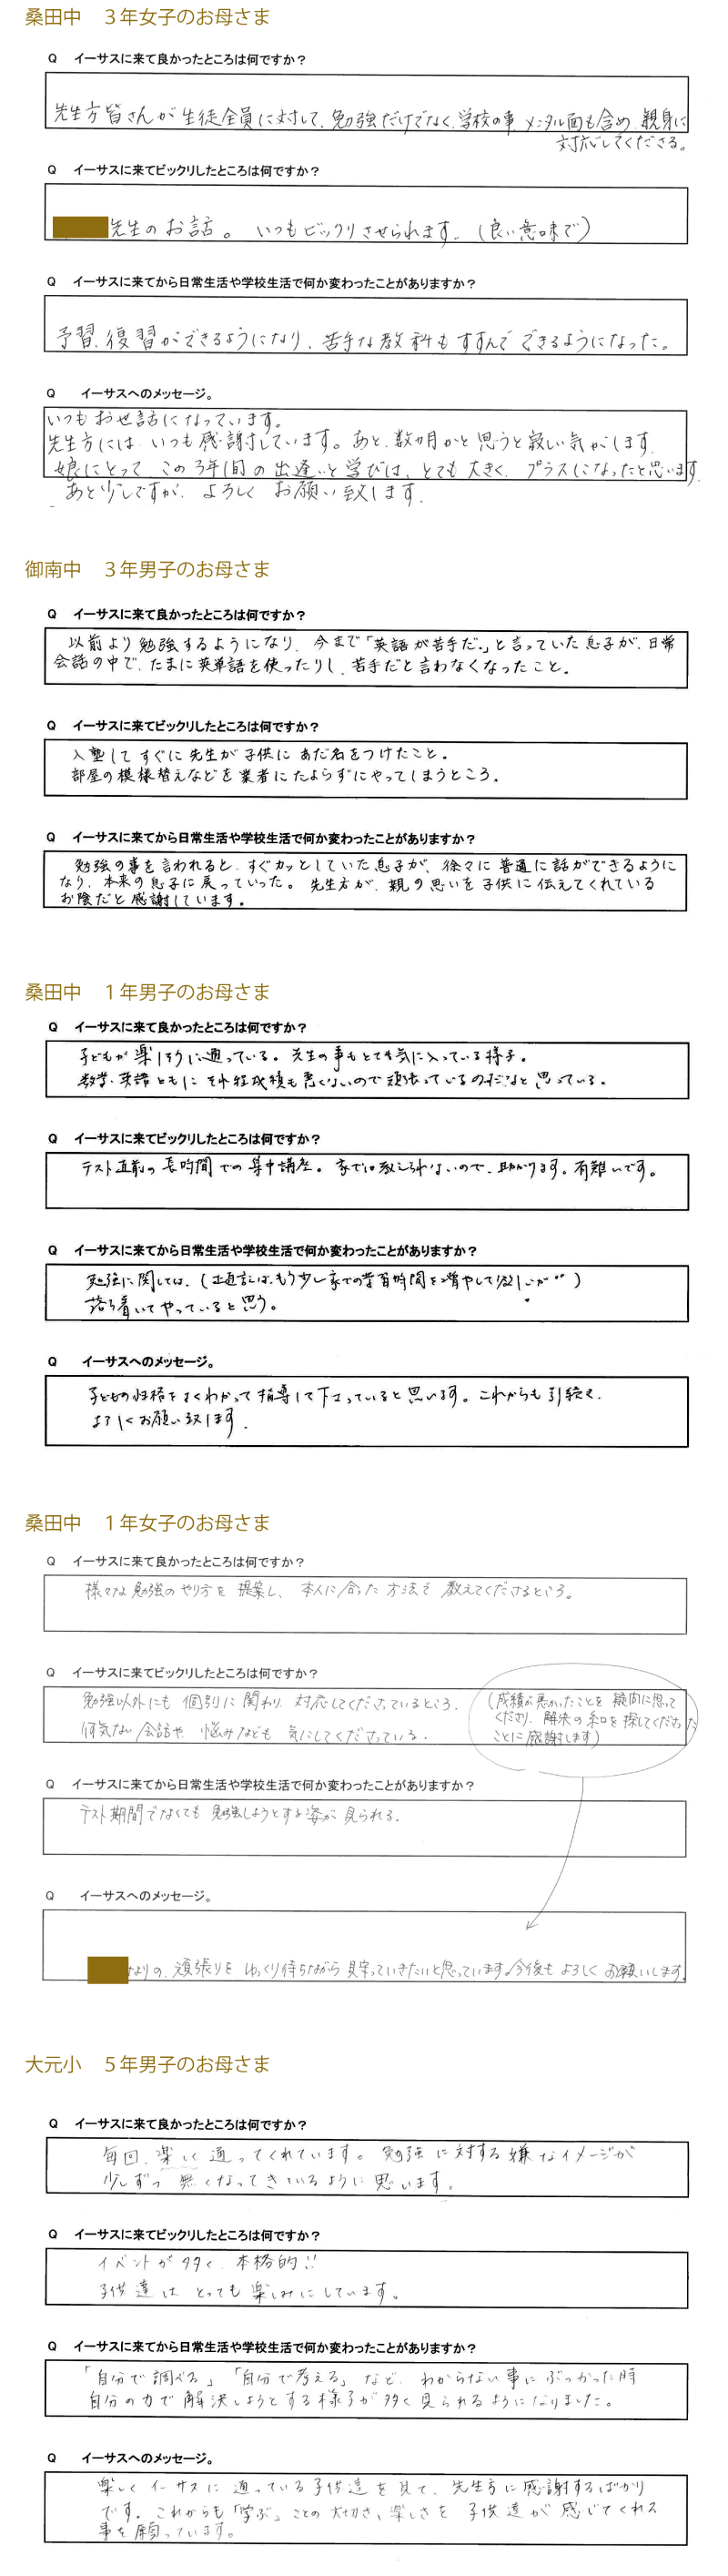 桑田中　３年女子のお母さま
Q　イーサスに来て良かったところは何ですか？
先生方皆さんが生徒全員に対して、勉強だけでなく、学校の事 メンタル面も含め、親身に
対応してくださる。
Q　イーサスに来てビックリしたところは何ですか？
先生のお話。いつもビックリさせられます。(良い意味で)
Q　イーサスに来てから日常生活や学校生活で何か変わったことがありますか？
予習、復習ができるようになり、苦手な教科もすすんでできるようになった。
Q　イーサスへのメッセージ。
いつもお世話になっています。
先生方には いつも感謝しています。あと、数か月かと思うと寂しい気がします。
娘にとって、この3年間の出逢いと学びは、とても大きく、プラスになったと思います。
あと少しですが、よろしく お願い致します。
御南中　３年男子のお母さま
Q　イーサスに来て良かったところは何ですか？
以前より勉強するようになり、今まで「英語が苦手だ。」と言っていた息子が、日常
会話の中で、たまに英単語を使ったりし、苦手だと言わなくなったこと。
Q　イーサスに来てビックリしたところは何ですか？
入塾してすぐに先生が子供にあだ名をつけたこと。
部屋の模様替えなどを業者にたよらずにやってしまうところ。
Q　イーサスに来てから日常生活や学校生活で何か変わったことがありますか？
勉強の事を言われると、すぐカッとしていた息子が、徐々に普通に話ができるように
なり、本来の息子に戻っていった。先生方が、親の思いを子供に伝えてくれている
お陰だと感謝しています。
桑田中　１年男子のお母さま
Q　イーサスに来て良かったところは何ですか？
子どもが楽しそうに通っている。先生の事もとても気に入っている様子。
数学、英語ともにそれ程成績も悪くないので頑張っているのだなと思っている。
Q　イーサスに来てビックリしたところは何ですか？
テスト直前の長時間での集中講座。家では教えられないので、助かります。有難いです。
Q　イーサスに来てから日常生活や学校生活で何か変わったことがありますか？
勉強に関しては、(正直言えば、もう少し家での学習時間を増やして欲しいが…)
落ち着いてやっていると思う。
Q　イーサスへのメッセージ。
子どもの性格をよくわかって指導して下さっていると思います。これからも引続き、
よろしくお願い致します。
桑田中　１年女子のお母さま
Q　イーサスに来て良かったところは何ですか？
様々な勉強のやり方を提案し、本人に合った方法で教えてくださるところ。
Q　イーサスに来てビックリしたところは何ですか？
勉強以外にも個別に関わり、対応してくださっているところ。
何気ない会話や、悩みなども気にしてくださっている。
(成績が悪かったことを疑問に思って
くださり、解決の糸口を探してくださった
ことに感謝します)
Q　イーサスに来てから日常生活や学校生活で何か変わったことがありますか？
テスト期間でなくても勉強しようとする姿が見られる。
Q　イーサスへのメッセージ。
なりの、頑張りをゆっくり待ちながら見守っていきたいと思っています。今後もよろしくお願いします。
大元小　５年男子のお母さま
Q　イーサスに来て良かったところは何ですか？
毎回、楽しく通ってくれています。勉強に対する嫌なイメージが
少しずつ無くなってきているように思います。
Q　イーサスに来てビックリしたところは何ですか？
イベントが多く、本格的!!
子供達はとっても楽しみにしています。
Q　イーサスに来てから日常生活や学校生活で何か変わったことがありますか？
「自分で調べる」「自分で考える」など、わからない事にぶつかった時
自分の力で解決しようとする様子が多く見られるようになりました。
Q　イーサスへのメッセージ。
楽しくイーサスに通っている子供達を見て、先生方に感謝するばかり
です。これからも「学ぶ」ことの大切さ、楽しさを子供達が感じてくれる
事を願っています。